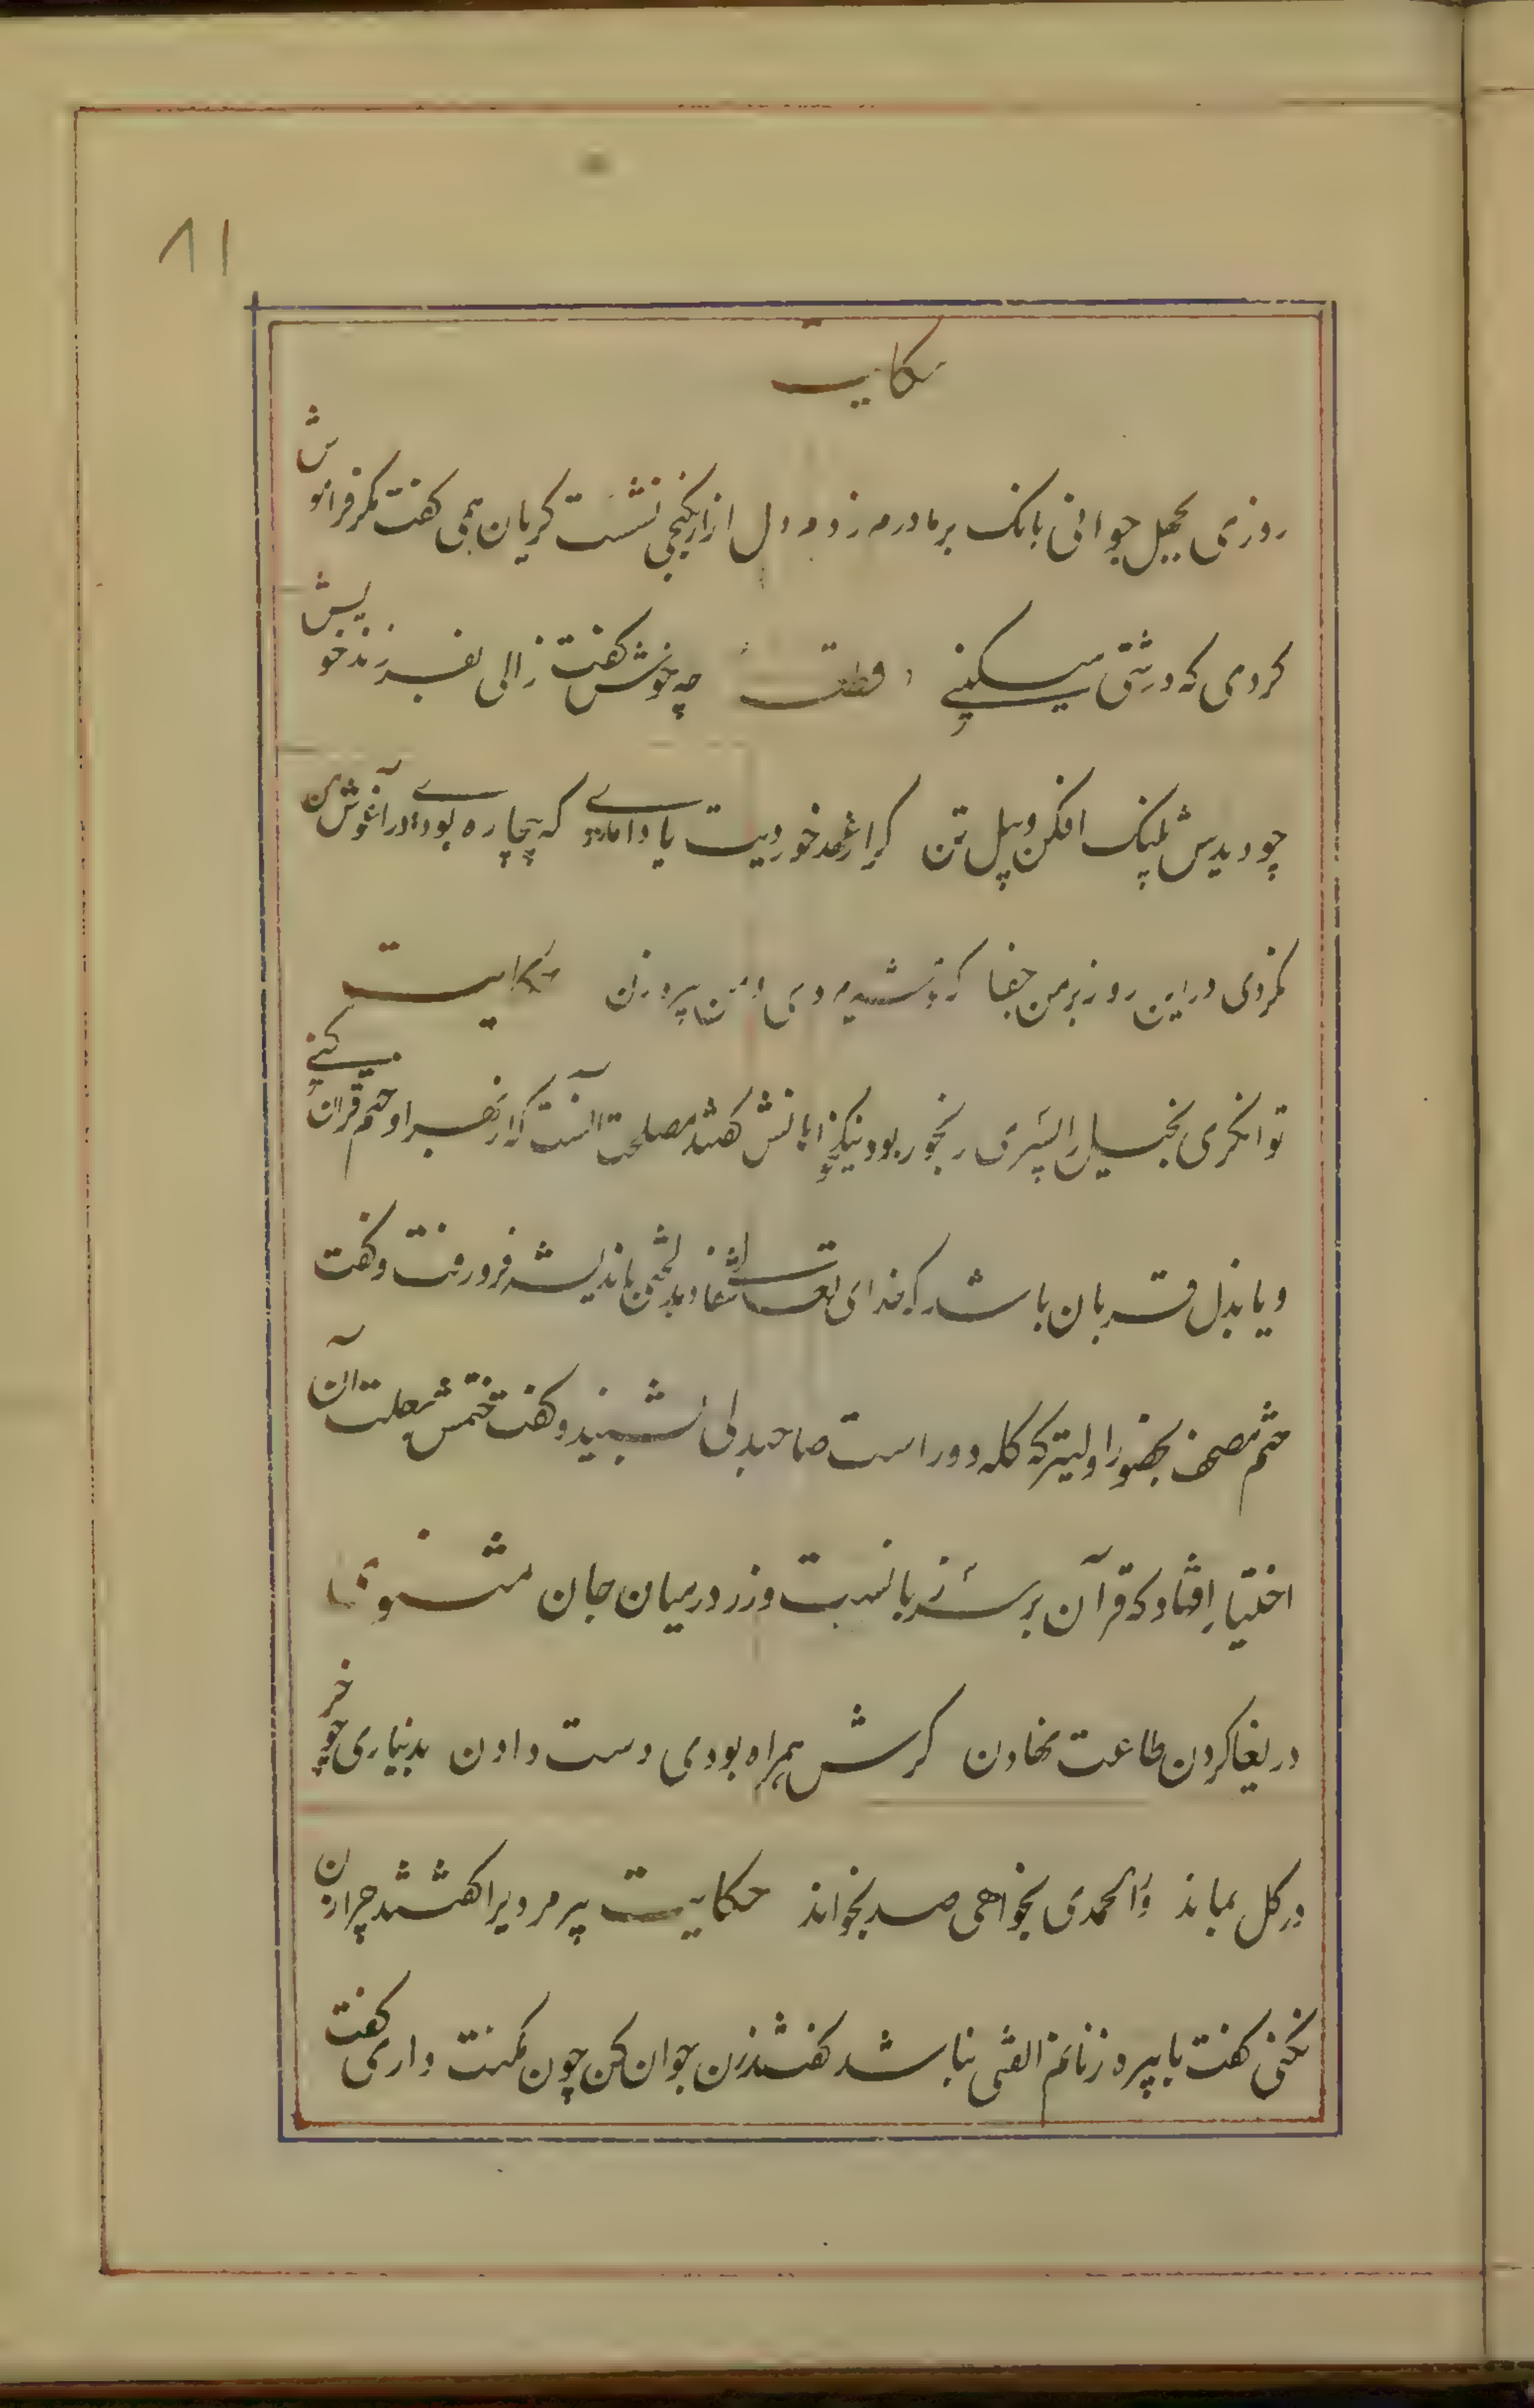 ۸۱
حکایت
روزی بجهل جوانی بانک بر مادرم زدم دل ازار بکنجی نشست کریان همی کفت مکر فراموش
کردی که درشتی میکنی قطعه چه خوش کفت زالی بفرزند خویش
چو دیدش پلنک افکن و پیل تن کر از عهد خوردیت یاد امدی که بیچاره بودی در آغوش من
نکردی در این روز بر من جفا که تو شیر مردی و من پیر زن حکایت
توانکری بخیل را پسری رنجور بود نیکخواهانش کفتند مصلحت آنست که از بهر او ختم قران کنی
و یا بذل قربان باشد که خدای تعالی شفا دهد لختی باندیشه فرو رفت و کفت
ختم مصحف بحضور اولیتر که کله دور است صاحبدلی بشنید و کفت ختمش بعلت آن
اختیار افتاد که قرآن بر سر زبانست و زر در میان جان مثنوی
دریغا کردن طاعت نهادن کرش همراه بودی دست دادن بدیناری چو خر
در کل بماند ور الحمدی بخواهی صد بخواند حکایت پیر مردیرا کفتند چرا زن
نکنی کفت با پیره زنانم الفتی نباشد کفتند زن جوان بکن چون مکنت داری کفت